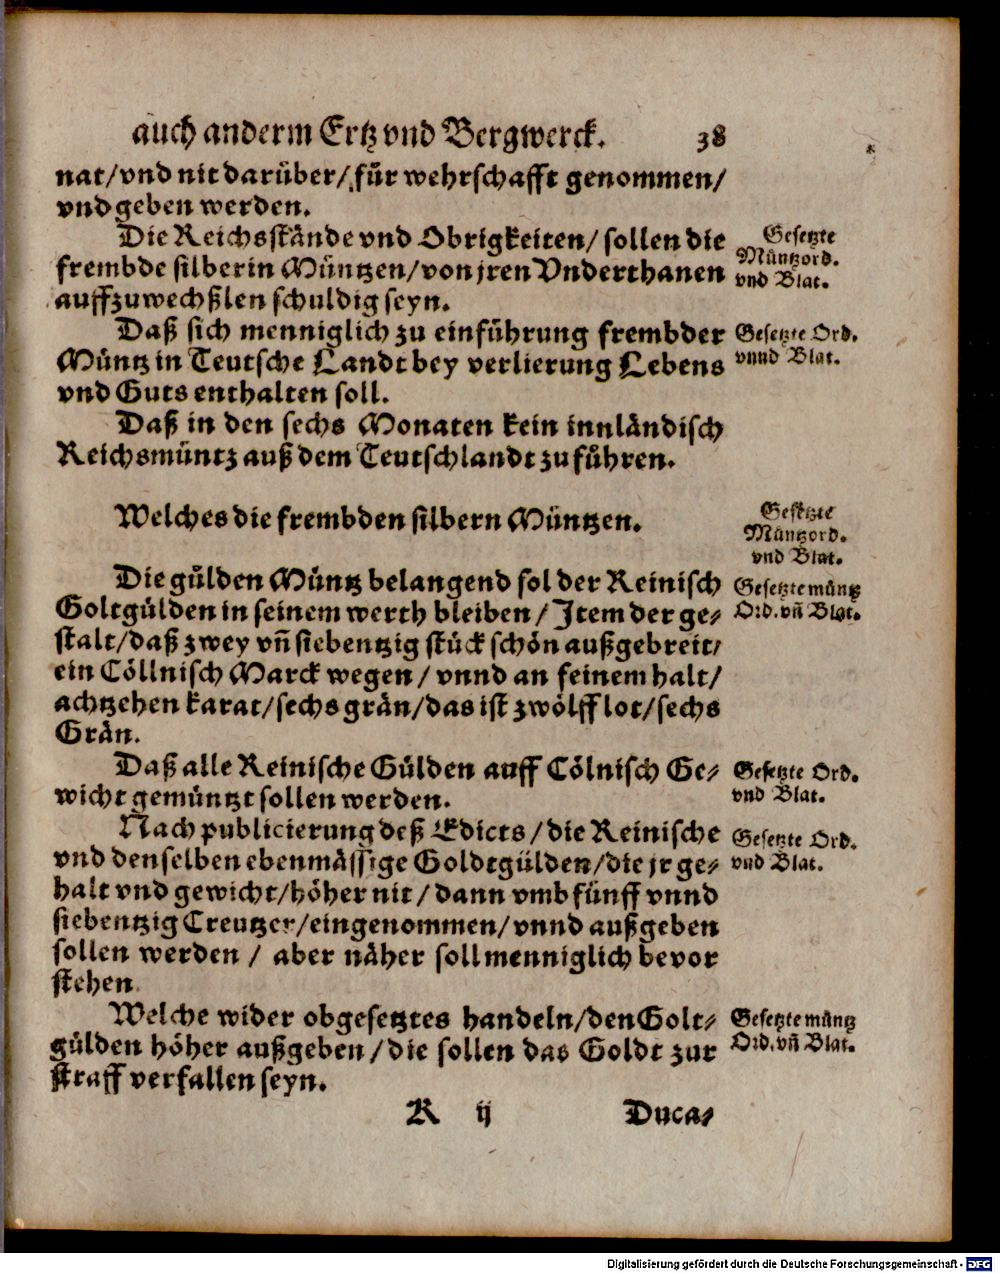 auch anderm Ertz vnd Bergwerck. 38
nat/vnd nit darüber/für wehrschafft genommen/
vnd geben werden.
Die Reichsstände vnd Obrigkeiten/ sollen die
frembde silberin Müntzen/von jren Vnderthanen
auffzuwechßlen schuldig seyn.
Gesetzte
Müntzord.
vnd Blat.
Daß sich menniglich zu einführung frembder
Müntz in Teutsche Landt bey verlierung Lebens
vnd Guts enthalten soll.
Gesetzte Ord.
vnnd Blat.
Daß in den sechs Monaten kein innländisch
Reichsmüntz auß dem Teutschlandt zu führen.
Welches die frembden silbern Müntzen.
Gesetzte
Müntzord.
vnd Blat.
Die gülden Müntz belangend sol der Reinisch
Goltgülden in seinem werth bleiben/ Item der ge-
stalt/daß zwey vñ siebentzig stück schön außgebreit/
ein Cöllnisch Marck wegen/ vnnd an feinem halt/
achtzehen karat/sechs grän/das ist zwölff lot/sechs
Grän.
Gesetzte müntz
Ord. vñ Blat.
Daß alle Reinische Gülden auff Cölnisch Ge-
wicht gemüntzt sollen werden.
Gesetzte Ord.
vnd Blat.
Nach publicierung deß Edicts/die Reinische
vnd denselben ebenmässige Goldtgülden/die jr ge-
halt vnd gewicht/höher nit/ dann vmb fünff vnnd
siebentzig Creutzer/eingenommen/vnnd außgeben
sollen werden/ aber näher soll menniglich bevor
stehen.
Gesetzte Ord.
vnd Blat.
Welche wider obgesetztes handeln/den Golt-
gülden höher außgeben/die sollen das Goldt zur
straff verfallen seyn.
Gesetzte müntz
Ord. vñ Blat.
K ij Duca-
Digitalisierung gefördert durch die Deutsche Forschungsgemeinschaft - DFG